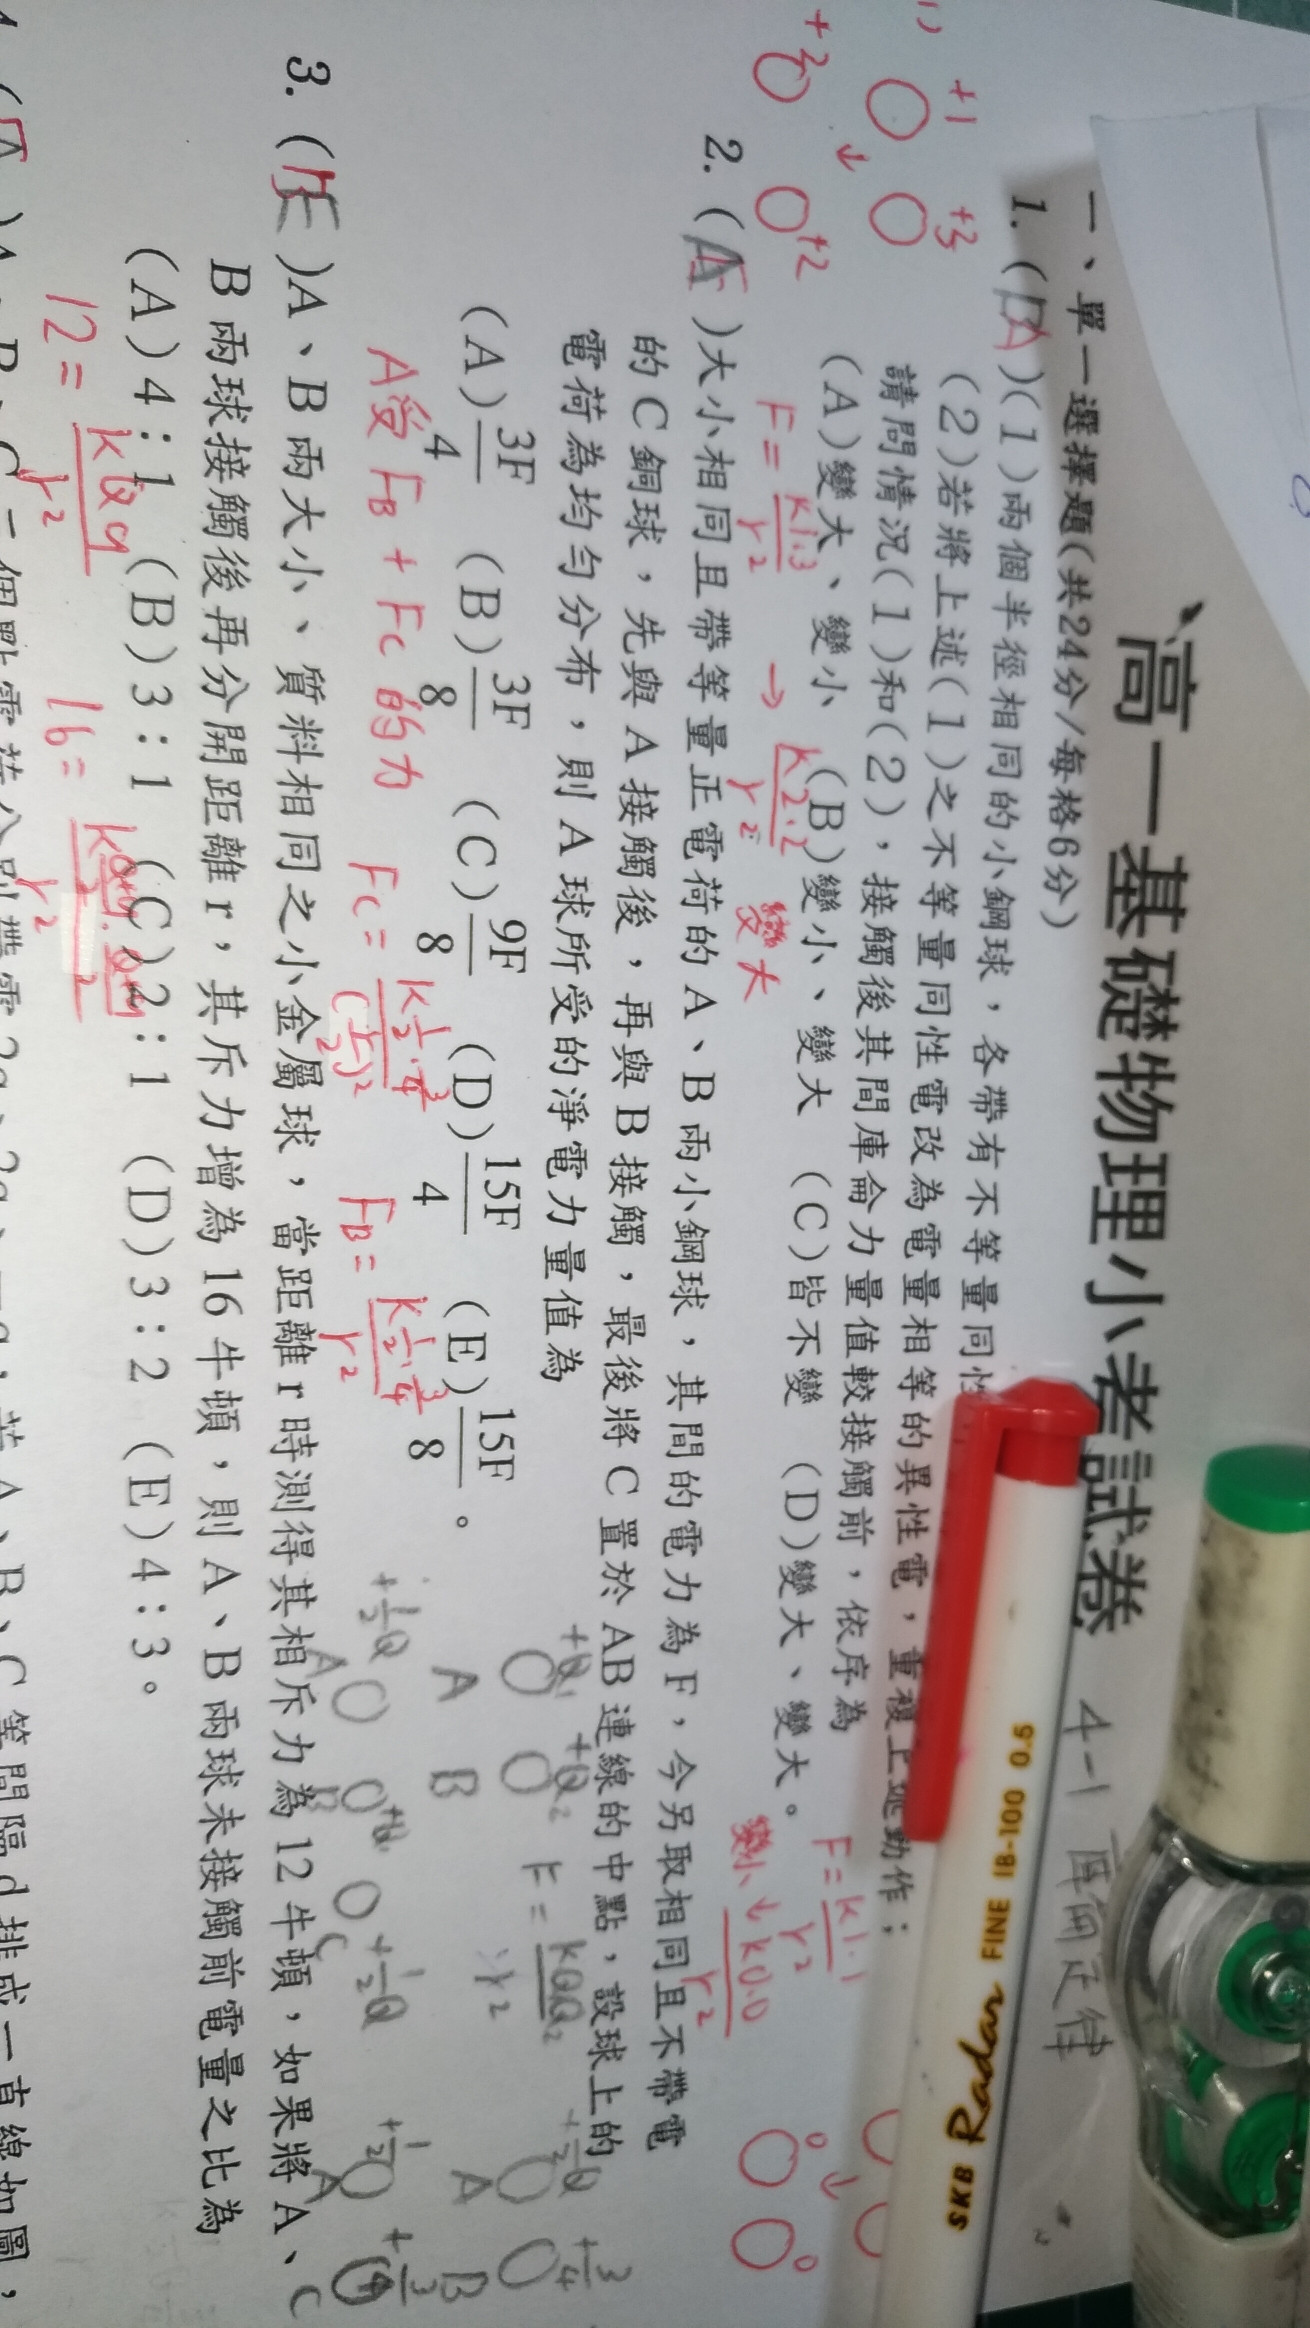 高一基礎物理小考試卷 4-1 庫侖定律
一、單一選擇題(共24分/每格6分)
1. (A)(1)兩個半徑相同的小鋼球，各帶有不等量同性
(2)若將上述(1)之不等量同性電改為電量相等的異性電，重複上述動作；
請問情況(1)和(2)，接觸後其間庫侖力量值較接觸前，依序為
(A)變大、變小 (B)變小、變大 (C)皆不變 (D)變大、變大。
+1 +3
+2 +2
F = k1·3/r² → k2·2/r² 變大
F = k1·1/r²
變小 ↓ k0·0/r²
0 0
2. ( )大小相同且帶等量正電荷的A、B兩小鋼球，其間的電力為F，今另取相同且不帶電
的C銅球，先與A接觸後，再與B接觸，最後將C置於AB連線的中點，設球上的
電荷為均勻分布，則A球所受的淨電力量值為
(A)3F/4 (B)3F/8 (C)9F/8 (D)15F/4 (E)15F/8。
A受 FB + FC 的力 FC = k½·¾/(½r)² FB = k½·¾/r²
+Q₁ +Q₂ F = kQ₁Q₂/r²
A B
+½Q +Q +½Q
A B C
+½Q +¾
A B
+½ +¾
A
3. (E)A、B兩大小、質料相同之小金屬球，當距離r時測得其相斥力為12牛頓，如果將A、
B兩球接觸後再分開距離r，其斥力增為16牛頓，則A、B兩球未接觸前電量之比為
(A)4：1 (B)3：1 (C)2：1 (D)3：2 (E)4：3。
12 = kQq/r² 16 = k
SKB Radar FINE IB-100 0.5